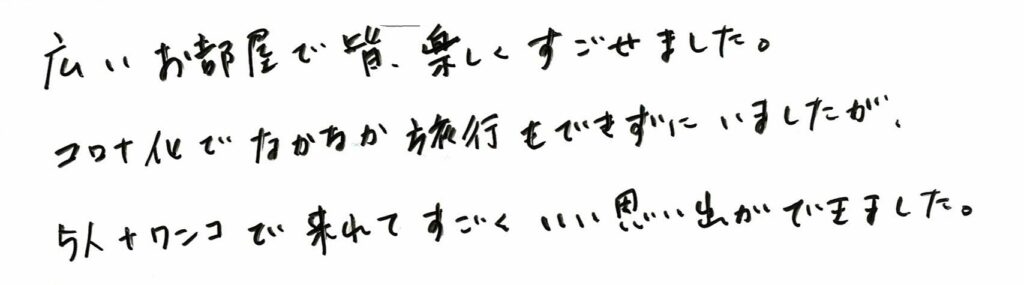 広いお部屋で皆、楽しくすごせました。
コロナ化でなかなか旅行もできずにいましたが、
5人+ワンコで来れてすごくいい思い出ができました。